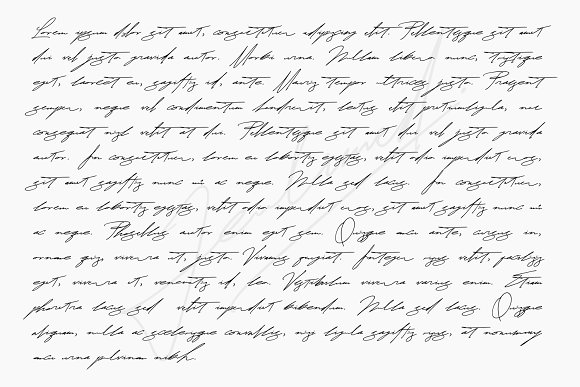 Lorem ipsum dolor sit amet, consectetuer adipiscing elit. Pellentesque sit amet
dui vel justo gravida auctor. Morbi urna. Nullam libero nunc, tristique
eget, laoreet eu, sagittis id, ante. Mauris tempor ultrices justo. Praesent
semper, neque vel condimentum hendrerit, lectus elit pretium ligula, nec
consequat nisl velit at dui. Pellentesque sit amet dui vel justo gravida
auctor. In consectetuer, lorem eu lobortis egestas, velit odio imperdiet eros,
sit amet sagittis nunc mi ac neque. Nulla sed lacus. In consectetuer,
lorem eu lobortis egestas, velit odio imperdiet eros, sit amet sagittis nunc mi
ac neque. Phasellus auctor enim eget sem. Quisque arcu ante, cursus in,
ornare quis, viverra ut, justo. Vivamus feugiat. Integer risus velit, facilisis
eget, viverra et, venenatis id, leo. Vestibulum viverra varius enim. Etiam
pharetra lacus sed velit imperdiet bibendum. Nulla sed lacus. Quisque
aliquam, nulla ac scelerisque convallis, nisi ligula sagittis risus, at nonummy
arcu urna pulvinar nibh.